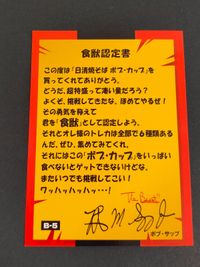 食獣認定書
この度は「日清焼そば ボブ・カップ」を
買ってくれてありがとう。
どうだ、超特盛って凄い量だろう？
よくぞ、挑戦してきたな。ほめてやるぜ！
その勇気を称えて
君を「食獣」として認定しよう。
それとオレ様のトレカは全部で6種類あるん
だ。ぜひ、集めてみてくれ。
それにはこの「ボブ・カップ」をいっぱい
食べないとゲットできないけどな。
またいつでも挑戦してこい！
ワッハーハッハッ・・・！
The Beast
B-5
ボブ・サップ